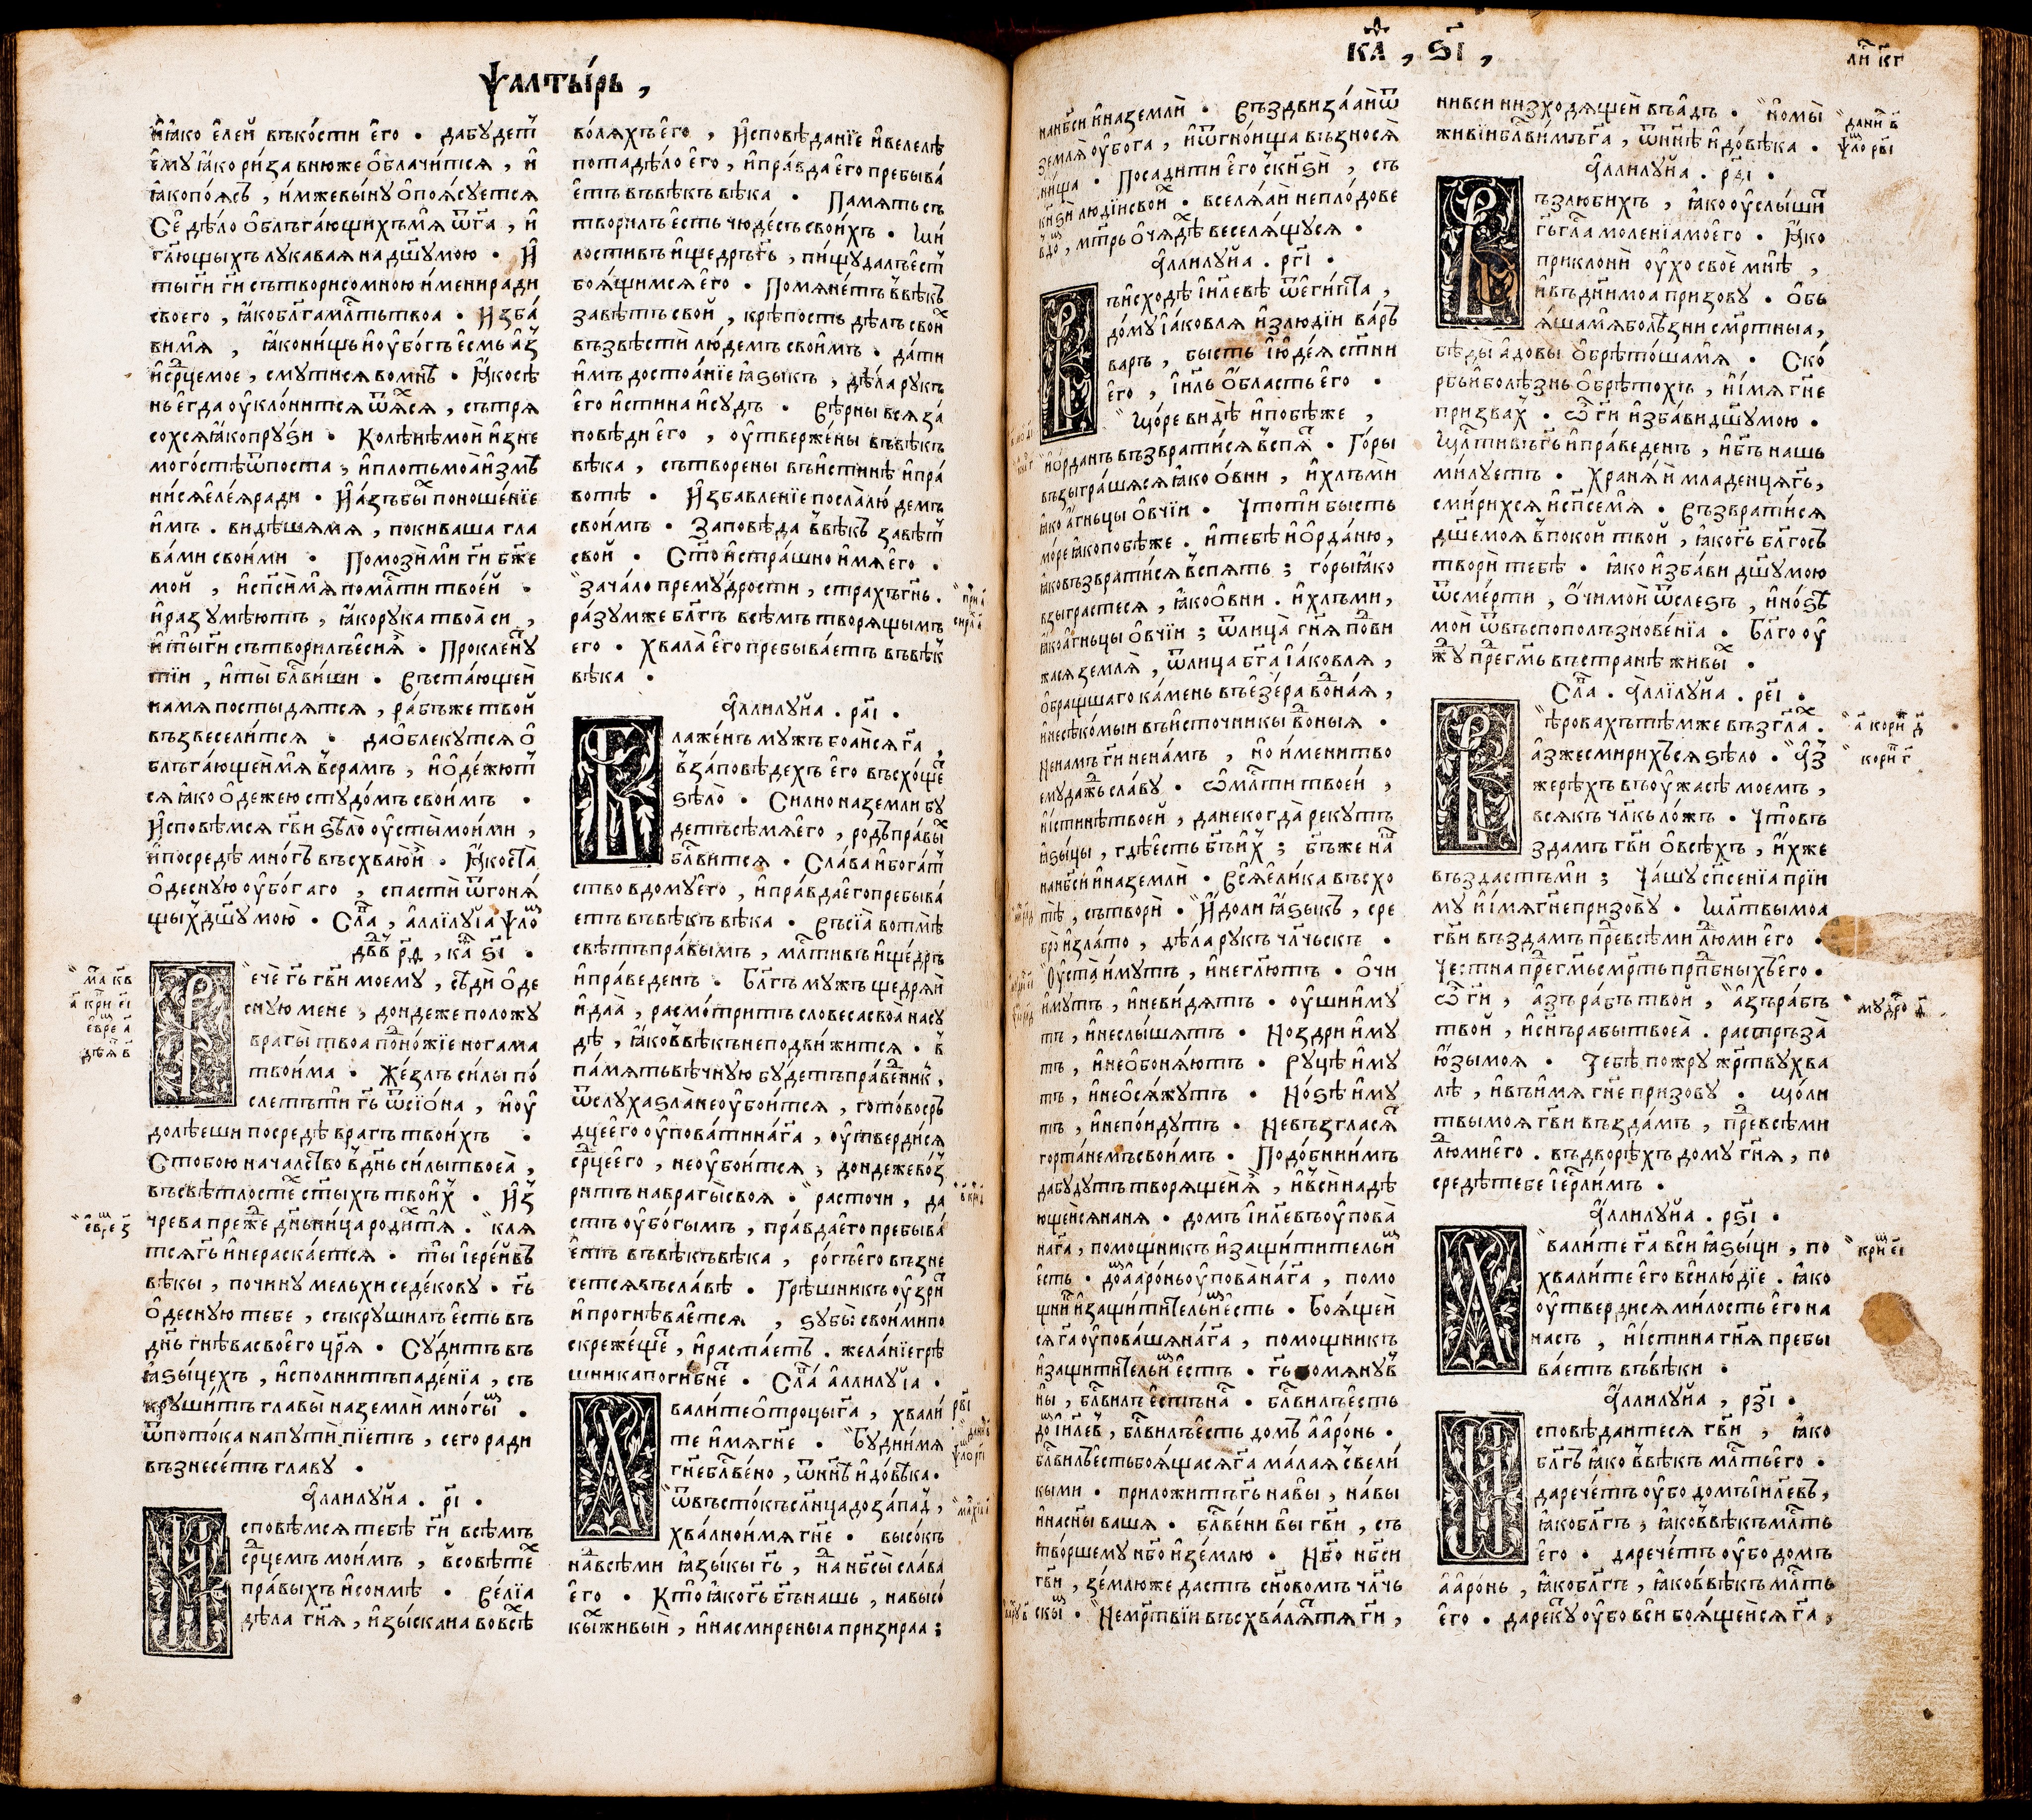 Ѱалты́рь ,
и҆ ꙗ҆́ко є҆лей въко́сти є҆го • дабудетⷭ҇
є҆му ꙗ҆́ко ри́за внюже ѻ҆блачи́тсѧ , и҆
ꙗ҆́копо́ѧсъ , и́мжевы́ну ѻ҆поѧ́суетсѧ
Се дѣ́ло ѻ҆бълга́ющихъмѧ ѿг҃а , и҆
гл҃ющыхъ лукаваѧ на дш҃умою • И҆
ты́ ги҃ ги҃ сътворисомною и҆мениради
своего , ꙗ҆́кобл҃гамл҃тьтвоа • И҆зба́
ви́мѧ , ꙗ҆́кони́щьи҆оу҆бо́гъ є҆́смь а҆́з
и҆ срⷣцемое , смути́сѧ вомнѣ̀ • Ꙗ҆́косѣ
нь є҆гда оу҆кло́нитсѧ ѿѧсѧ , сътрѧ
со́хсѧꙗ҆́копру́зи • Колѣ́нѣмои҆ и҆зне
мого́стѣѿпоста , и҆плотьмоа̀ и҆змѣ
ни́сѧє҆ле́ѧради • И҆а҆́зъбы́хъ поноше́нїе
и҆́мъ . ви́дѣшамѧ , покиваша гла
ва́ми свои́ми • Помози́ми ги҃ бж҃е
мой , и҆сп҃си́мѧ помл҃ти твое́й •
и҆разумѣ́ютъ , ꙗ҆́корука твоа̀ си ,
и҆ты́ ги҃ сътворилъє҆сиѧ̀ • Прокленꙋтъ
тїи , и҆ты́ бл҃ви́ши • Въста́ющеи
намѧ постыдѧ́тсѧ , ра́бъже твой
възвесели́тсѧ • даѻ҆блекутсѧ ѻ҆
блъга́ющеимѧ̀ всра́мъ , и҆ѻ҆де́жютⷭ
сѧ ꙗ҆́ко ѻ҆де́жею студо́мъ свои́мъ •
И҆сповѣ́мсѧ гв҃и ѕѣло̀ оу҆сты̀ мои́ми ,
и҆посредѣ̀ мно́гъ въсхвалю̀и҆̀ • Ꙗ҆́коста̀
ѻ҆десную оу҆бо́гаго , спастѝ ѿгонѧ́
щыхъ дш҃у мою̀ • Слⷡ҇а , аллїлуїа ѱло
дв҃дъ рд҃ , каⷴ ѕ҃і •
м̃а к҃в
а҃ кѡ҃ри е҃і
є҆вре а҃
дѣѧ̃ в҃
ече̂ гь҃ гв҃и моему̀ , сѣди ѻ҆де
сну́ю мене , до́ндеже положу̀
врагы̀ твоа поⷣно́жїе нога́ма
твои́ма • Же́злъ си́лы по́
слетъти̂ гь҃ ѿсїо́на , и҆ оу҆
долѣ́еши посредѣ̀ врагъ твои́хъ •
С тобо́ю начало́ство вдн҃ь си́лы твоеа̀ ,
въсвѣ́тлостеⷯ ст҃ы́хъ твои́хъ • И҆з
є҆вре з҃
чре́ва пре́жⷣе дн҃ьни́ца роди́хтѧ̀ . клѧ
тсѧ̀гь҃ и҆нераска́етсѧ • ты̀ їере́йвъ
вѣ́кы , почи́ну мельхиседе́кову • гь҃
ѻ҆десну́ю тебе , съкруши́лъ є҆́сть въ
дн҃ь гнѣ́ва своє҆го цр҃ѧ • Су́дитъ въ
ꙗ҆зы́цехъ , и҆спо́лнитъ паде́нїа , съ
кру́шитъ главы̀ наземлѝ мно́гыⷯ •
ѿпото́ка напутѝ пїе́тъ , сего ра́ди
възнесе́тъ главу̀ •
А҆ллилу́йа . р҃і •
сповѣ́мсѧ тебѣ̀ ги҃ всѣ́мъ
срⷣцемъ мои́мъ , всовѣ́теⷯ
пра́выхъ и҆со́нмѣ • Ве́лїа
дѣла̀ гн҃ѧ , и҆зы́скана вовсѣ̀
во́лѧхъ є҆го , И҆сповѣ́данїе и҆велелѣ́
пота дѣ́ло є҆го , и҆пра́вда є҆го пребыва́
є҆тъ въвѣ́къ вѣ́ка • Па́мѧть съ
твори́лъ є҆сть чюде́съ свои́хъ • Ми́
лостивъ и҆ще́дръгь҃ , пи́щу да́лъе҆стⷭ
боѧ́щимсѧ є҆го • Помѧне́тъ ввѣ́къ
завѣ́тъ свой , крѣ́пость дѣ́лъ своиⷯ
възвѣстѝ лю́демъ свои́мъ • да́ти
и҆мъ достоа́нїе ꙗ҆зы́къ , дѣ́ла рукъ
є҆го и҆стина и҆су́дъ • Вѣ́рны всѧ за́
повѣди є҆го , оу҆тверже́ны въвѣ́къ
вѣка , сътворе́ны въи́стинѣ и҆пра́
вотѣ • И҆збавле́нїе посла̀ лю́демъ
свои́мъ • Заповѣ́да ввѣ́къ завѣ́тъ
свой • Ст҃о и҆стра́шно и҆́мѧ є҆го •
зача́ло прему́дрости , стра́хъ гн҃ь .
ра́зумже бл҃гъ всѣ́мъ творѧ́щымъ
его • Хвала̀ є҆го пребыва́етъ въвѣ́къ
вѣ́ка •
А҆ллилу́йа . ра҃і •
лаже́нъ му́жъ боа҆йсѧ га҃ ,
вза́повѣдехъ е҆го въсхо́щеⷮ
ѕѣло̀ • Си́лно наземли бу́
детъ сѣ́мѧ є҆го , ро́дъ пра́выⷯ
бл҃ви́тсѧ • Сла́ва и҆бога́тⷭ
ство вдому̀ є҆го , и҆пра́вда є҆го пребыва́
етъ въвѣ́къ вѣ́ка • Въсїа̀ вотмѣ̀
свѣ́тъ пра́вымъ , мл҃тивъ и҆ще́дръ
и҆пра́веденъ • Бл҃гъ му́жъ ще́дрѧй
и҆даа̀ , расмо́тритъ словеса̀ своа̀ насу
дѣ̀ , ꙗ҆́ковъвѣ́къ неподви́житсѧ • в
па́мѧть вѣ́чную бу́детъ пра́веⷣникъ ,
ѿслуха ѕла̀ неоу҆бои́тсѧ , гото́во сръ
дцее҆го оу҆пова́ти нага҃ , оу҆твердисѧ
срⷣце є҆го , неоу҆бои́тсѧ , до́ндеже во́з
ритъ навраги̂ своѧ̀ • расточи̂ , да
стъ оу҆бо́гымъ , пра́вда є҆го пребыва́
є҆тъ въвѣ́къ вѣ́ка , ро́гъ е҆го възне
се́тсѧ въсла́вѣ • Грѣ́шникъ оу҆́зриⷮ
и҆прогнѣ́ваетсѧ , ѕубы̀ свои́ми по
скреже́щеⷮ , и҆раста́етъ . жела́нїе грѣ́
шника поги́бнеⷮ • Слⷡ҇а аллилу́їа •
р҃ві
вали́те ѻ҆́троцы га҃ , хвали́
те и҆́мѧ гн҃е • Бу́ди и҆́мѧ
гн҃е бл҃ве́но , ѿнн҃ѣ и҆до́вѣка .
ѿвъсто́къ слн҃ца до за́падъ ,
хва́лно и҆́мѧ гн҃е • высо́къ
наⷣвсѣ́ми ꙗ҆зы́кы гь҃ , наⷣ нб҃сы̀ сла́ва
є҆го • Кто̂ ꙗ҆́когь҃ бг҃ъ на́шь , навысо́
кыⷯ живы́й , и҆насмире́ныа призира́а ;
ка҃ , ѕ҃і ,
лиⷭ кг҃
нанб҃си и҆наземлѝ • Въздвиза́а҆й ѿ
землѧ̀ оу҆бо́га , и҆ѿгно́ища възносѧ̀
ни́ща • Посади́ти є҆го съ кн҃ѕи , съ
кн҃ѕи люді́й свои́хъ • вселѧ́ай непло́довъ
вдо́мъ , мт҃рь ѻ҆ча́дѣⷯ веселѧ́щусѧ •
А҆ллилу́йа . рг҃і •
ъи҆схо́дѣ і҆и҃левѣ ѿегі́пта ,
до́му і҆а́ковлѧ и҆злю́дїи ва́ръ
варъ , бы́сть і҆юде́ѧ ст҃ни
є҆го , і҆и҃ль ѻ҆́бласть є҆го •
Мо́ре ви́дѣ и҆побѣ́же ,
и҆ѻ҆рда́нъ възврати́сѧ вспѧ́ть • Го́ры
възыгра́шасѧ ꙗ҆́ко ѻ҆́вни , и҆хлъ́ми
ꙗ҆́ко а҆́гньцы ѻ҆́вчїи • Чтоти̂ бы́сть
мо́ре ꙗ҆́ко побѣ́же . и҆тебѣ̀ и҆ѻ҆рда́ню ,
ꙗ҆́ковъзврати́сѧ вспѧ́ть ; го́ры ꙗ҆́ко
взыгра́стесѧ , ꙗ҆́ко ѻ҆́вни . и҆хлъ́ми ,
ꙗ҆́ко а҆́гньцы ѻ҆́вчїи ; ѿлица̀ гн҃ѧ поⷣви
жасѧ землѧ̀ , ѿлица бг҃а і҆а́ковлѧ ,
ѻ҆бра́щшаго ка́мень въе҆зе́ра воⷣна́ѧ ,
и҆несѣко́мыи въи҆сто́чникы воⷣны́ѧ •
Нена́мъ ги҃ нена́мъ , но и҆́мени тво
ему̀ да́жь сла́ву • ѡ҆мл҃ти твое́и ,
и҆и҆́стинѣ твоей , данекогда̀ реку́тъ
ꙗ҆зы́цы , гдѣ̀ є҆́сть бг҃ъ и҆́хъ ; бг҃ъже на́шь
нанб҃си и҆наземлѝ • Всѧ̀ є҆ли́ка въсхо
тѣ̀ , сътворѝ • И҆́доли ꙗ҆зы́къ , сре
бро̀ и҆зла́то , дѣ́ла рукъ чл҃чьскъ •
Оу҆ста̀ и҆́мутъ , и҆негл҃ютъ • ѻ҆чи
и҆́мутъ , и҆неви́дѧтъ • оу҆́ши и҆́му
тъ , и҆неслы́шатъ • Но́здри и҆́му
тъ , и҆неѻ҆бонѧ́ютъ • Ру́цѣ и҆́му
тъ , и҆неѻ҆сѧ́жутъ • Но́зѣ и҆́му
тъ , и҆непо́идутъ • Невъзгласѧⷮ
горта́немъ свои́мъ • Подо́бни и҆́мъ
дабу́дутъ творѧ́щеи ѧ҆̀ , и҆всѝ надѣ́
ющеисѧ нанѧ • до́мъ і҆и҃левъ оу҆пова̀
нага҃ , помо́щникъ и҆защи́тительи҆мъ
є҆́сть • до́мъ а҆аро́нь оу҆пова̀ нага҃ , помо́
щниⷦ и҆защи́тительи҆мъ є҆́сть • Боѧ́щеи
сѧ га҃ оу҆пова́ша нага҃ , помо́щникъ
и҆защи́тительи҆мъ є҆́сть • гь҃ помѧну́в
ны̀ , бл҃ви́лъ є҆́стъ на́съ • бл҃ви́лъ є҆́сть
до́мъ і҆и҃левъ , бл҃ви́лъ є҆́сть до́мъ а҆аро́нь •
бл҃ви́лъ є҆́сть боѧ́щасѧ га҃ ма́лаѧ свели́
кыми • приложи́тъгь҃ навы̀ , навы̀
и҆насн҃ы ва́ша • бл҃ве́ни вы̀ гв҃и , съ
тво́ршему нб҃о и҆зе́млю • Нб҃о нб҃си
гв҃и , зе́млюже да́стъ сн҃ово́мъ чл҃чь
скыⷨ • Неме́ртвїи въсхва́лѧтътѧ ги҃ ,
нивсѝ низходѧ́щеи въа́дъ • но мы̀
живі́и бл҃ви́мъ га҃ , ѿнн҃ѣ и҆до́вѣка •
дани в҃
ѱло рв҃і
А҆ллилу́йа . рд҃і •
ъзлюби́хъ , ꙗ҆́ко оу҆слы́шиⷮ
гь҃ гла́съ моле́нїа моего • Ꙗ҆́ко
приклонѝ оу҆́хо свое мнѣ̀ ,
и҆въдн҃и моа̀ призову̀ • ѻ҆бь
ѧ́шамѧ болѣ́зни сме́ртныа ,
бѣды̀ а҆́довы ѻ҆брѣто́шамѧ • Ско́
рбьи҆болѣ́знь ѻ҆брѣто́хъ , и҆и҆́мѧ гн҃е
призва́хъ • ѽ ги҃ и҆зба́ви дш҃у мою •
Мл҃тивъгь҃ и҆пра́веденъ , и҆бг҃ъ нашь
ми́луетъ • Хранѧ́й младе́нца гь҃ ,
смири́хсѧ и҆сп҃се́мѧ • Възврати́сѧ
дш҃е моѧ̀ впоко́й твой , ꙗ҆́когь҃ бл҃госъ
творѝ тебѣ̀ • ꙗ҆́ко и҆зба́ви дш҃у мою
ѿсме́рти , ѻ҆́чи мои ѿсле́зъ , и҆но́зѣ
мои ѿвъспополъзнове́нїа • Бл҃го оу҆
жⷣу преⷣгм҃ъ въстранѣ̀ живы́хъ •
Слⷡ҇а . А҆ллїлу́йа . ре҃і •
ѣ́ровахъ тѣ́мже възгл҃ахъ .
а҃ кори д҃
а҆з же смири́хъсѧ ѕѣло̀ • А҆́з
кори г҃
же рѣ́хъ въоу҆́жасѣ мое́мъ ,
всѧ́къ чл҃къ ло́жъ • Что́въ
зда́мъ гв҃и ѻ҆всѣ́хъ , и҆́хже
възда́стъми ; Ча́шу сп҃се́нїа прїи
му̀ и҆и҆́мѧ гн҃е призову̀ • Мл҃твы моа
гв҃и възда́мъ преⷣвсѣ́ми люⷣми е҆го •
Честна̀ преⷣгм҃ъ сме́рть прпⷣбныхъ є҆го •
ѽ ги҃ , а҆́зъ ра́бъ твой , а҆́зъ ра́бъ
мудро
твой , и҆сн҃ъ рабы̀ твоеа̀ . растръза̀
ю҆́зы моѧ • Тебѣ̀ пожру̀ же́ртву хва
лѣ̀ , и҆въи́мѧ гн҃е призову̀ • Мо́ли
твы моѧ гв҃и възда́мъ , преⷣвсѣ́ми
люⷣми є҆го . въдво́рѣхъ до́му гн҃ѧ , по
средѣ̀ тебе і҆ерⷭли́мъ •
А҆ллилу́йа . рѕ҃і •
вали́те га҃ всѝ ꙗ҆зы́ци , по
кри е҃і
хвали́те є҆го всѝ лю́дїе . ꙗ҆́ко
оу҆тверди́сѧ ми́лость є҆го на
на́съ , и҆и҆́стина гн҃ѧ пребы
ва́етъ въвѣ́ки •
А҆ллилу́йа , рз҃і •
сповѣ́даитесѧ гв҃и , ꙗ҆́ко
бл҃гъ ꙗ҆́ко ввѣ́къ мл҃ть є҆го •
дарече́тъ оу҆́бо до́мъ і҆и҃левъ ,
ꙗ҆́кобл҃гъ , ꙗ҆́ковъвѣ́къ мл҃ть
є҆го • дарече́тъ оу҆́бо до́мъ
а҆аро́нь , ꙗ҆́кобл҃гъ , ꙗ҆́ковъвѣ́къ мл҃ть
є҆го • дареку́тъ оу҆́бо всѝ боѧ́щеисѧ га҃ ,